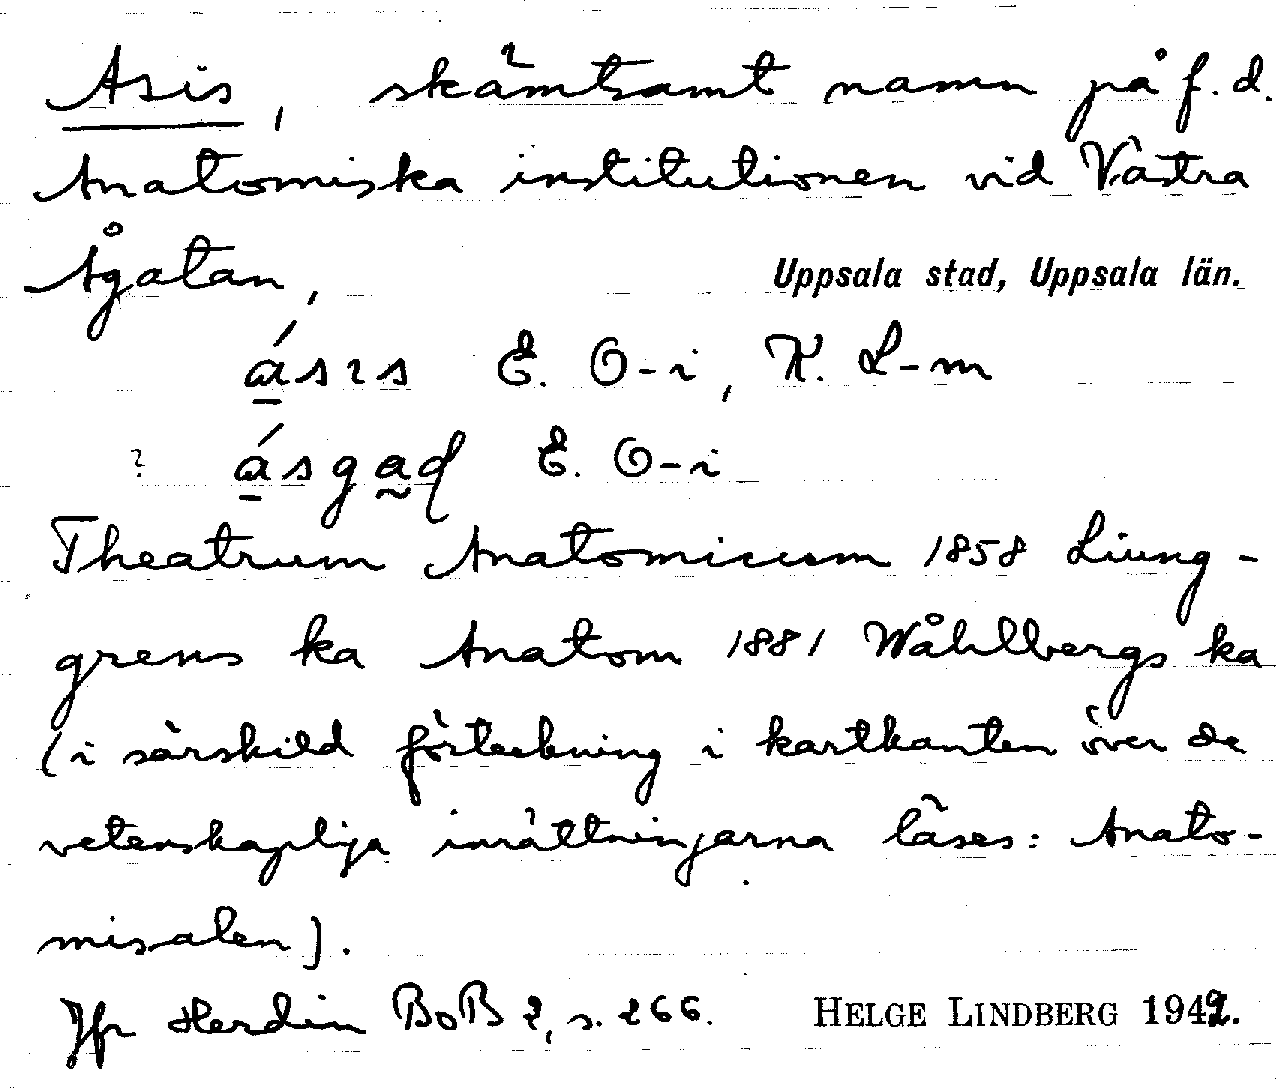 Asis, skämtsamt namn på f. d.
Anatomiska institutionen vid Västra
Ågatan,
Uppsala stad, Uppsala län.
ásıs E. O-i, K. L-m
? ásgaḍ E. O-i
Theatrum Anatomicum 1858 Liung-
grens ka Anatom 1881 Wåhlbergs ka
(i särskild förteckning i kartkanten över de
vetenskapliga inrättningarna läses: Anato-
misalen).
Jfr Herdin BoB 2, s. 266.
HELGE LINDBERG 1942.